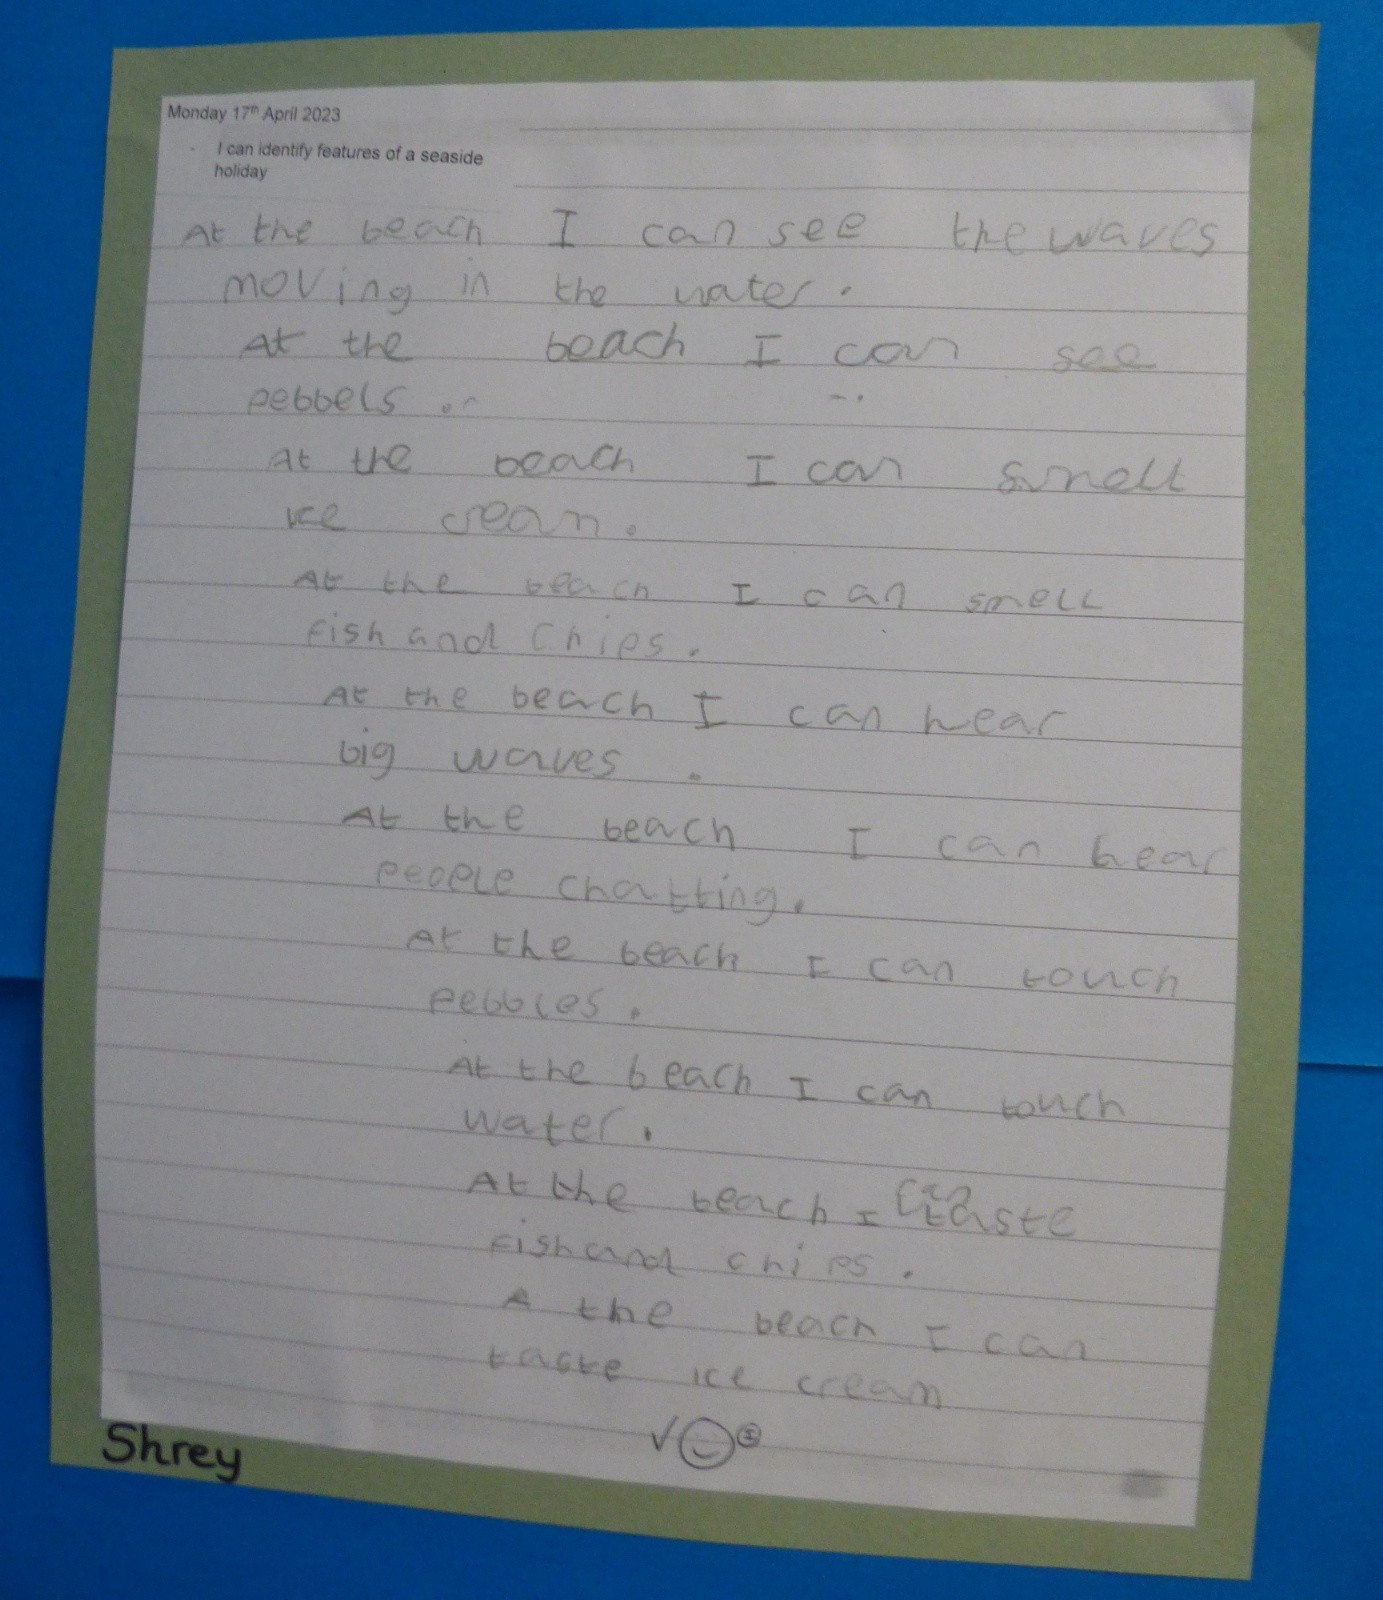 Monday 17th April 2023
I can identify features of a seaside
holiday
At the beach I can see the waves
moving in the water.
At the beach I can see
pebbels
At the beach I can smell
ice cream.
At the beach I can smell
fish and chips.
At the beach I can hear
big waves.
At the beach I can hear
people chatting.
At the beach I can touch
pebbles.
At the beach I can touch
water.
At the beach I can taste
fish and chips.
A the beach I can
taste ice cream
Shrey